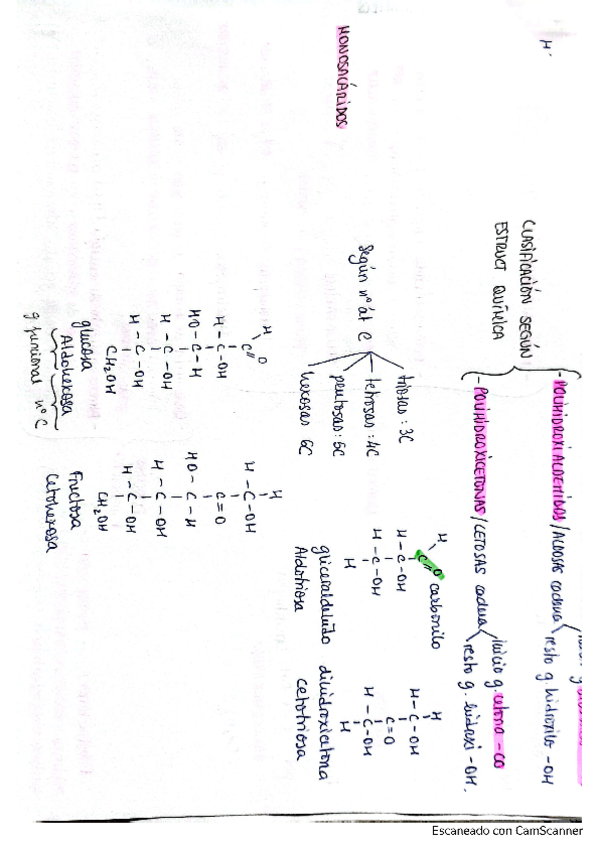 H·
CLASIFICACIÓN SEGÚN
ESTRUCT QUÍMICA
- POLIHIDROXIALDEHIDOS / ALDOSAS cadena
resto g. hidroxilo -OH
- POLIHIDROXICETONAS / CETOSAS cadena
inicio g. cetona - CO
resto g. hidroxi - OH.
MONOSACÁRIDOS
según nº át C
triosas : 3C
tetrosas : 4C
pentosas : 5C
hexosas 6C
H O carbonilo
C
H - C - OH
H - C - OH
H
gliceraldehído
Aldotriosa
H
H - C - OH
C = O
H - C - OH
H
dihidroxicetona
cetotriosa
H O
C
H - C - OH
HO - C - H
H - C - OH
H - C - OH
CH₂OH
glucosa
Aldohexosa
g funcional nº C
H
H - C - OH
C = O
HO - C - H
H - C - OH
H - C - OH
CH₂OH
Fructosa
Cetohexosa
Escaneado con CamScanner